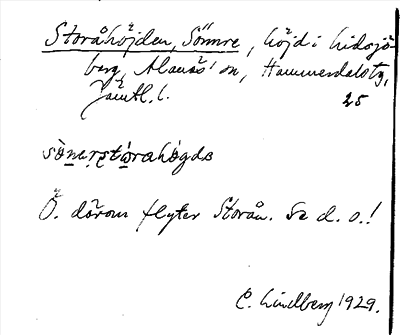 Storåhöjden, Sömre, höjd i Lidsjö-
berg, Alanäs sn, Hammerdals tg,
Jämtl. l. 25
Ö. därom flyter Storån. Se d. o.!
C. Lindberg 1929.